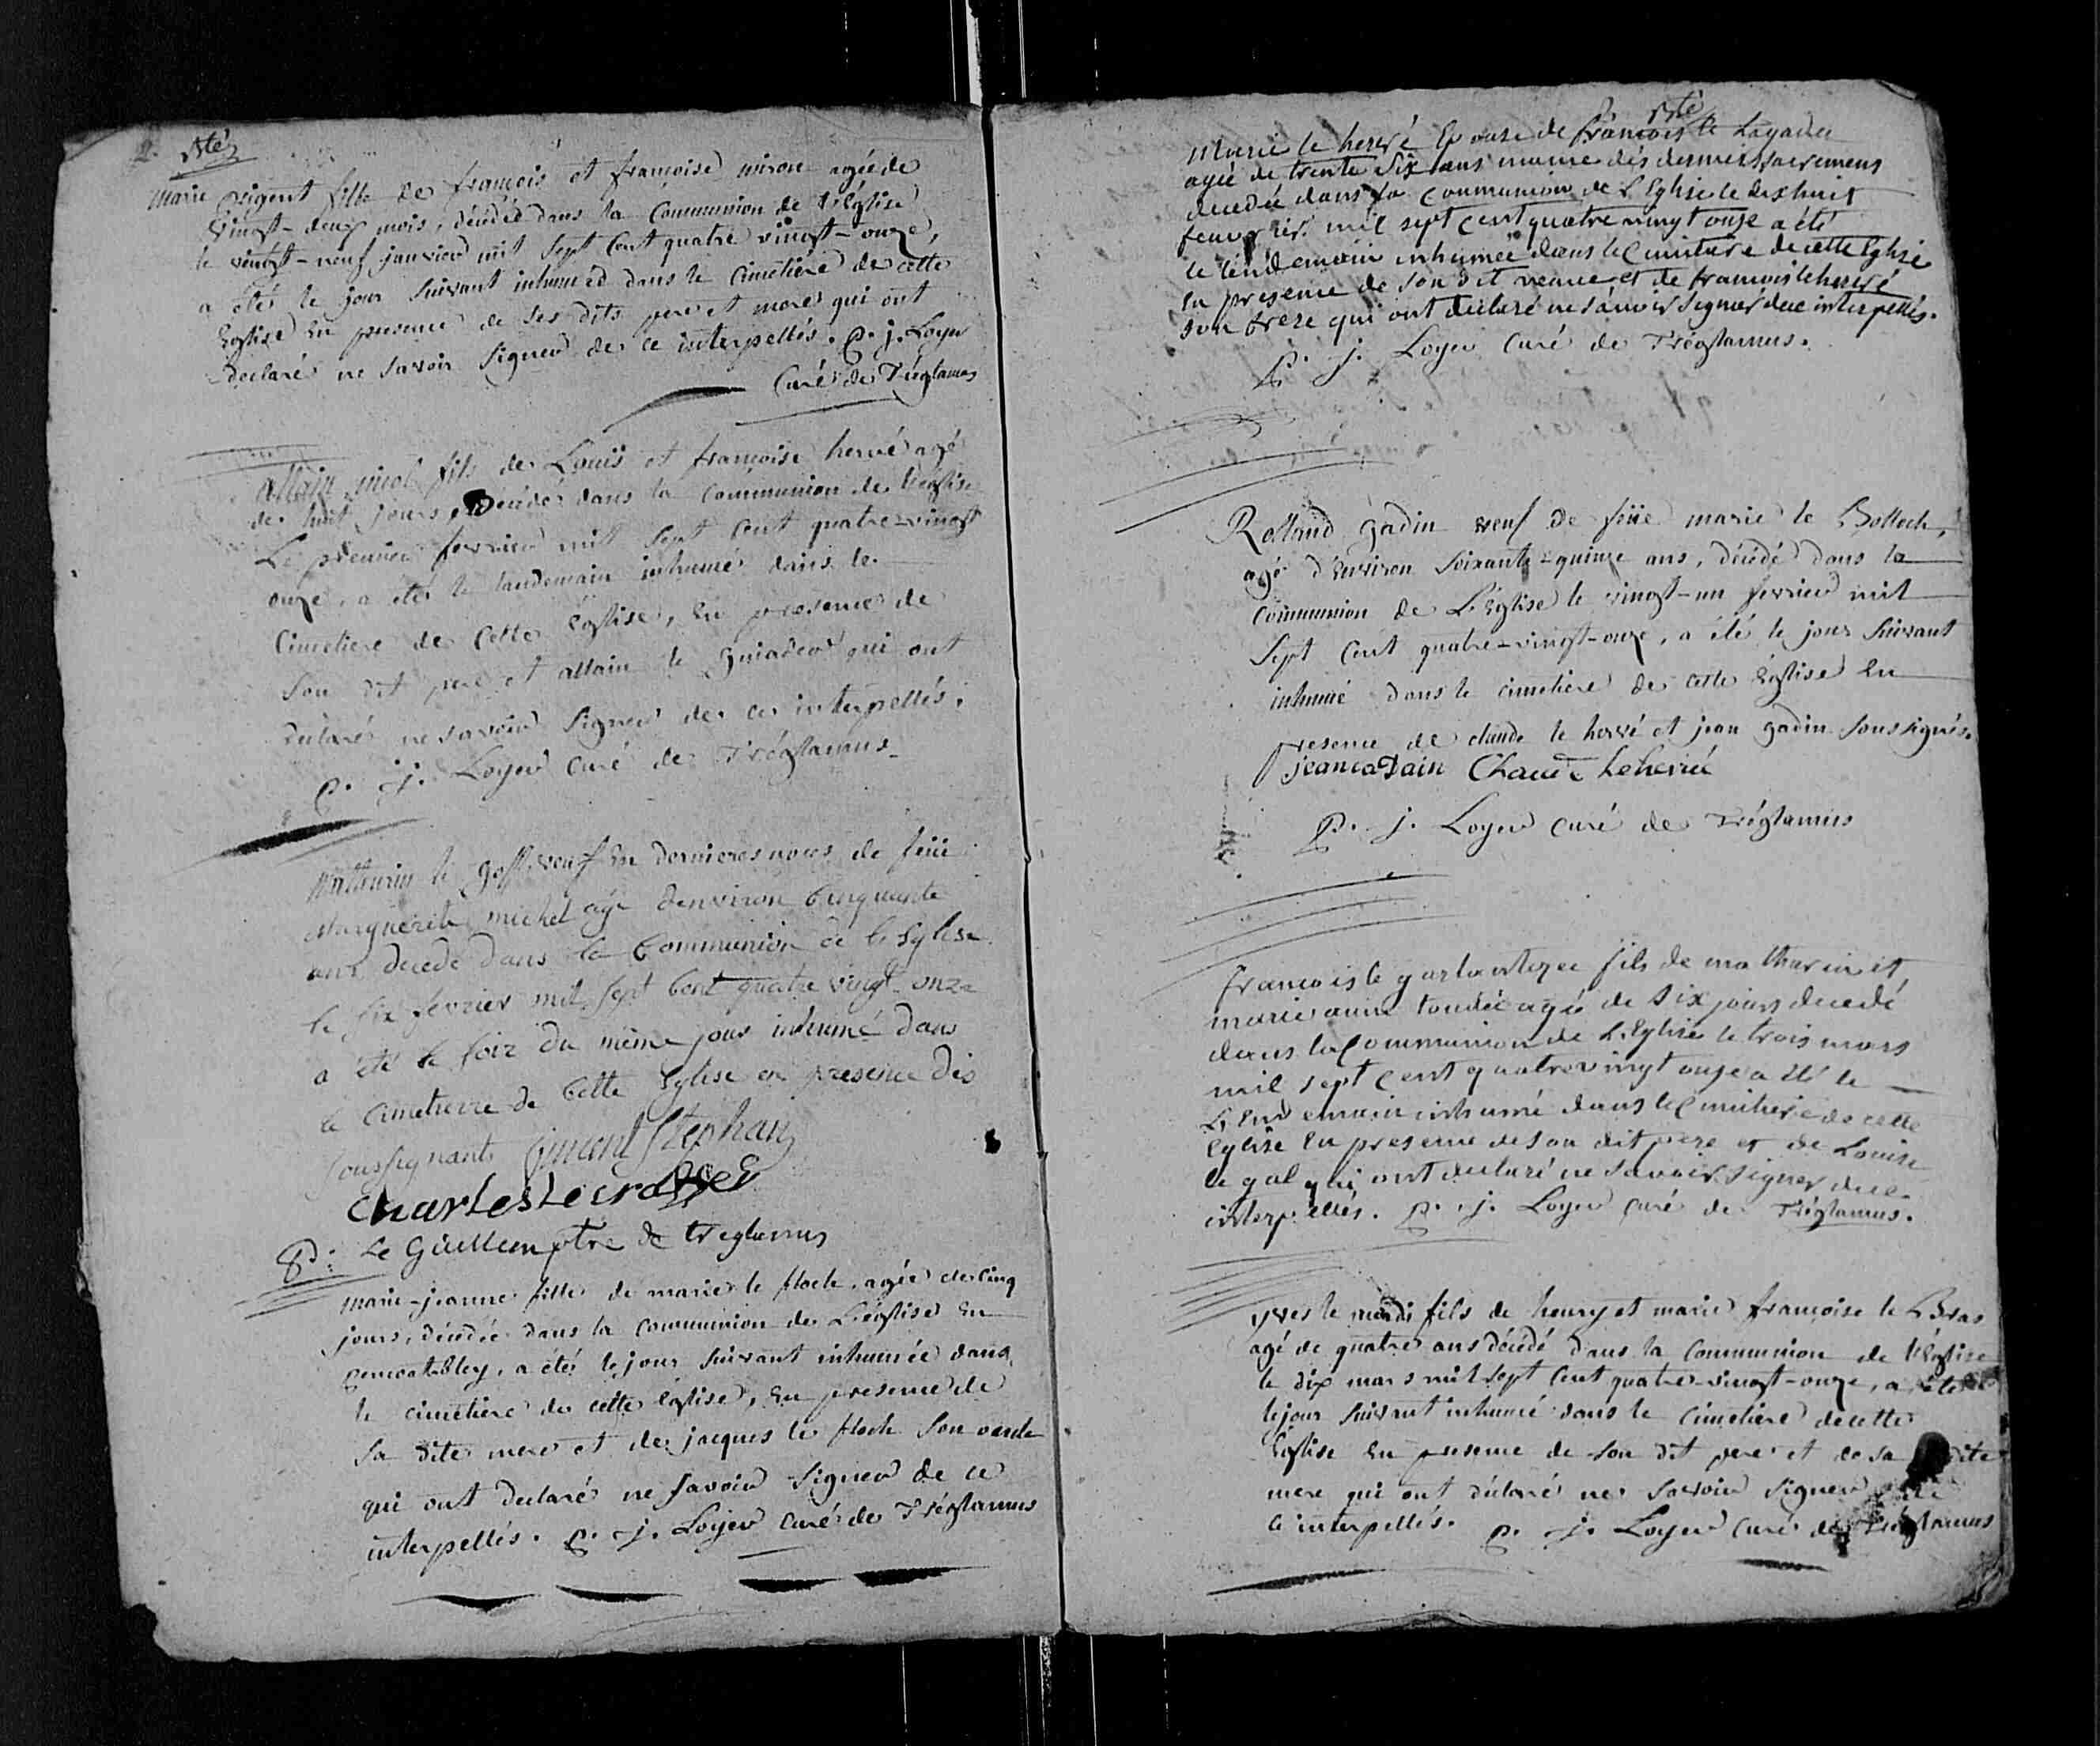 2.
marie prigent fille de françois et françoise agée de
vingt-deux mois, décédée dans la Communion de l'église
le vingt-neuf janvier mil sept Cent quatre vingt-onze,
a étés le jour suivant inhumée dans le cimetière de cette
église en presence de ses dits pere et mere qui ont
declaré ne savoir signer de ce interpellés. P. j. Loyer
Curé de Tréglamus
allain fils de Louis et françoise hervé agé
de huit jours, Décédé dans la communion de l'église
Le premier fevrier mil sept Cent quatre-vingt
onze, a étés le landemain inhumé dans le
Cimetiere de Cette église, En presence de
Son dit pere et allain le qui ont
déclaré ne savoir signer de ce interpellés.
P. J. Loyer curé de Tréglamus
Mathurin le goff veuf en dernieres noces de feüe
Marguerite michel agé denviron Cinquante
ans decedé Dans la Communion de l'Eglise
le six fevrier mil sept Cent quatre vingt onze
a été le soir du même jour inhumé dans
le Cimetierre de Cette Eglise en presence des
soussignants Stephan
Charles Le
P: Le Guillerm ptre de treglamus
marie-jeanne fille de marie le floch, agée de Cinq
jours, décédée dans la Communion de L'église En
a étés le jour suivant inhumée dans
le cimetière de cette église, En presence de
Sa dite mere et de jacques le floch Son oncle
qui ont declaré ne savoir signer de ce
interpellés. P. J. Loyer curé de Tréglamus
Marie le hervé Epouse de françois le
agée de trente six ans munie dés derniers sacremens
decedée dans la Communion de L'Eglise le dix huit
fevrier mil sept cent quatre vingt onze a été
le lendemain inhumée dans le Cimitiere de cette Eglise
En presence de son dit et de francois le hervé
son frere qui ont declaré ne savoir signer de ce interpellés.
P. J. Loyer Curé de Tréglamus.
Rolland gadin veuf de feüe marie le Bolloch,
agé d'Environ Soixante-quinze ans, décédé dans la
Communion de L'église le vingt-un fevrier mil
Sept Cent quatre-vingt-onze, a été le jour suivant
inhumé dans le cimetière de cette église En
presence de claude le hervé et jean gadin soussignés.
jean Chaude Lehervé
P. J. Loyer curé de Tréglamus
francois le fils de matharin et
marie anne agée de six jours decedé
dans la Communion de L'Eglise le trois mars
mil sept Cent quatre vingt onze a été le
L'endemain inhumé dans le Cimitiere de cette
Eglise En presence de son dit pere et de Louise
le gal qui ont declaré ne savoir signer de ce
interpellés. P. J. Loyer curé de Tréglamus.
yves le fils de henry et marie françoise le Bras
agé de quatre ans décédé dans la Communion de l'église
le dix mars mil sept Cent quatre-vingt-onze, a été
le jour suivant inhumé dans le cimetière de cette
Église En presence de son dit pere et de sa dite
mere qui ont déclaré ne savoir signer de
ce interpellés. P. J. Loyer curé de Tréglamus